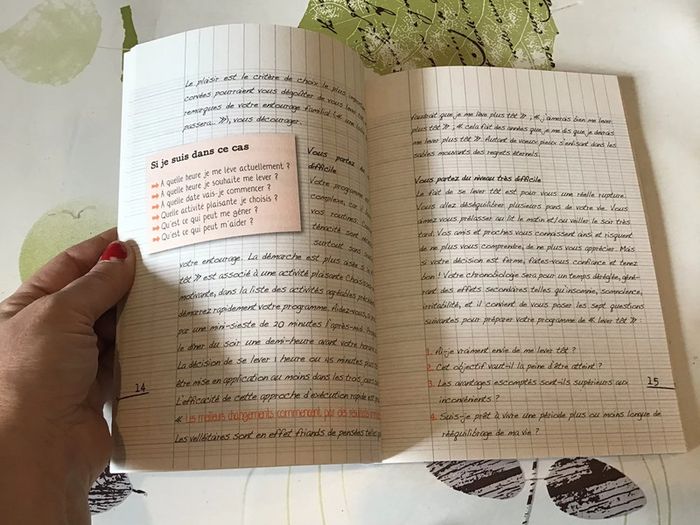 Le plaisir est le critère de choix le plus
corvées pourraient vous dégoûter de vous lever
remarques de votre entourage familial (« une
passera... »), vous décourager.
Si je suis dans ce cas
A quelle heure je me lève actuellement ?
A quelle heure je souhaite me lever ?
A quelle date vais-je commencer ?
Quelle activité plaisante je choisis ?
Qu'est ce qui peut me gêner ?
Qu'est ce qui peut m'aider ?
Vous partez du
difficile
Votre programme
complexe, car
vos routines.
ténacité sont
surtout sans
votre entourage. La démarche est plus aisée si le
tôt » est associé à une activité plaisante. Choisissez
motivante, dans la liste des activités agréables
démarrez rapidement votre programme. Aidez-vous, si
par une mini-sieste de 20 minutes l'après-midi.
le dîner du soir une demi-heure avant votre
La décision de se lever 1 heure ou 45 minutes plus
être mise en application au moins dans les trois
L'efficacité de cette approche d'exécution rapide est
« Les meilleurs changements commencent par des résultats
Les velléitaires sont en effet friands de pensées
14
faudrait que je me lève plus tôt » ; « j'aimerais bien me lever
plus tôt » ; « cela fait des années que je me dis que je devrais
me lever plus tôt ». Autant de vœux pieux s'enlisant dans les
sables mouvants des regrets éternels.
Vous partez du niveau très difficile
Le fait de se lever tôt est pour vous une réelle rupture.
Vous allez déséquilibrer plusieurs pans de votre vie. Vous
aimez vous prélasser au lit le matin et/ou veiller le soir très
tard. Vos amis et proches vous connaissent ainsi et risquent
de ne plus vous comprendre, de ne plus vous apprécier. Mais
si votre décision est ferme, faites-vous confiance et tenez
bon ! Votre chronobiologie sera pour un temps déréglée, géné-
rant des effets secondaires telles qu'insomnie, somnolence,
irritabilité, et il convient de vous poser les sept questions
suivantes pour préparer votre programme de « lever tôt ».
1. Ai-je vraiment envie de me lever tôt ?
2. Cet objectif vaut-il la peine d'être atteint ?
3. Les avantages escomptés sont-ils supérieurs aux
inconvénients ?
4. Suis-je prêt à vivre une période plus ou moins longue de
rééquilibrage de ma vie ?
15